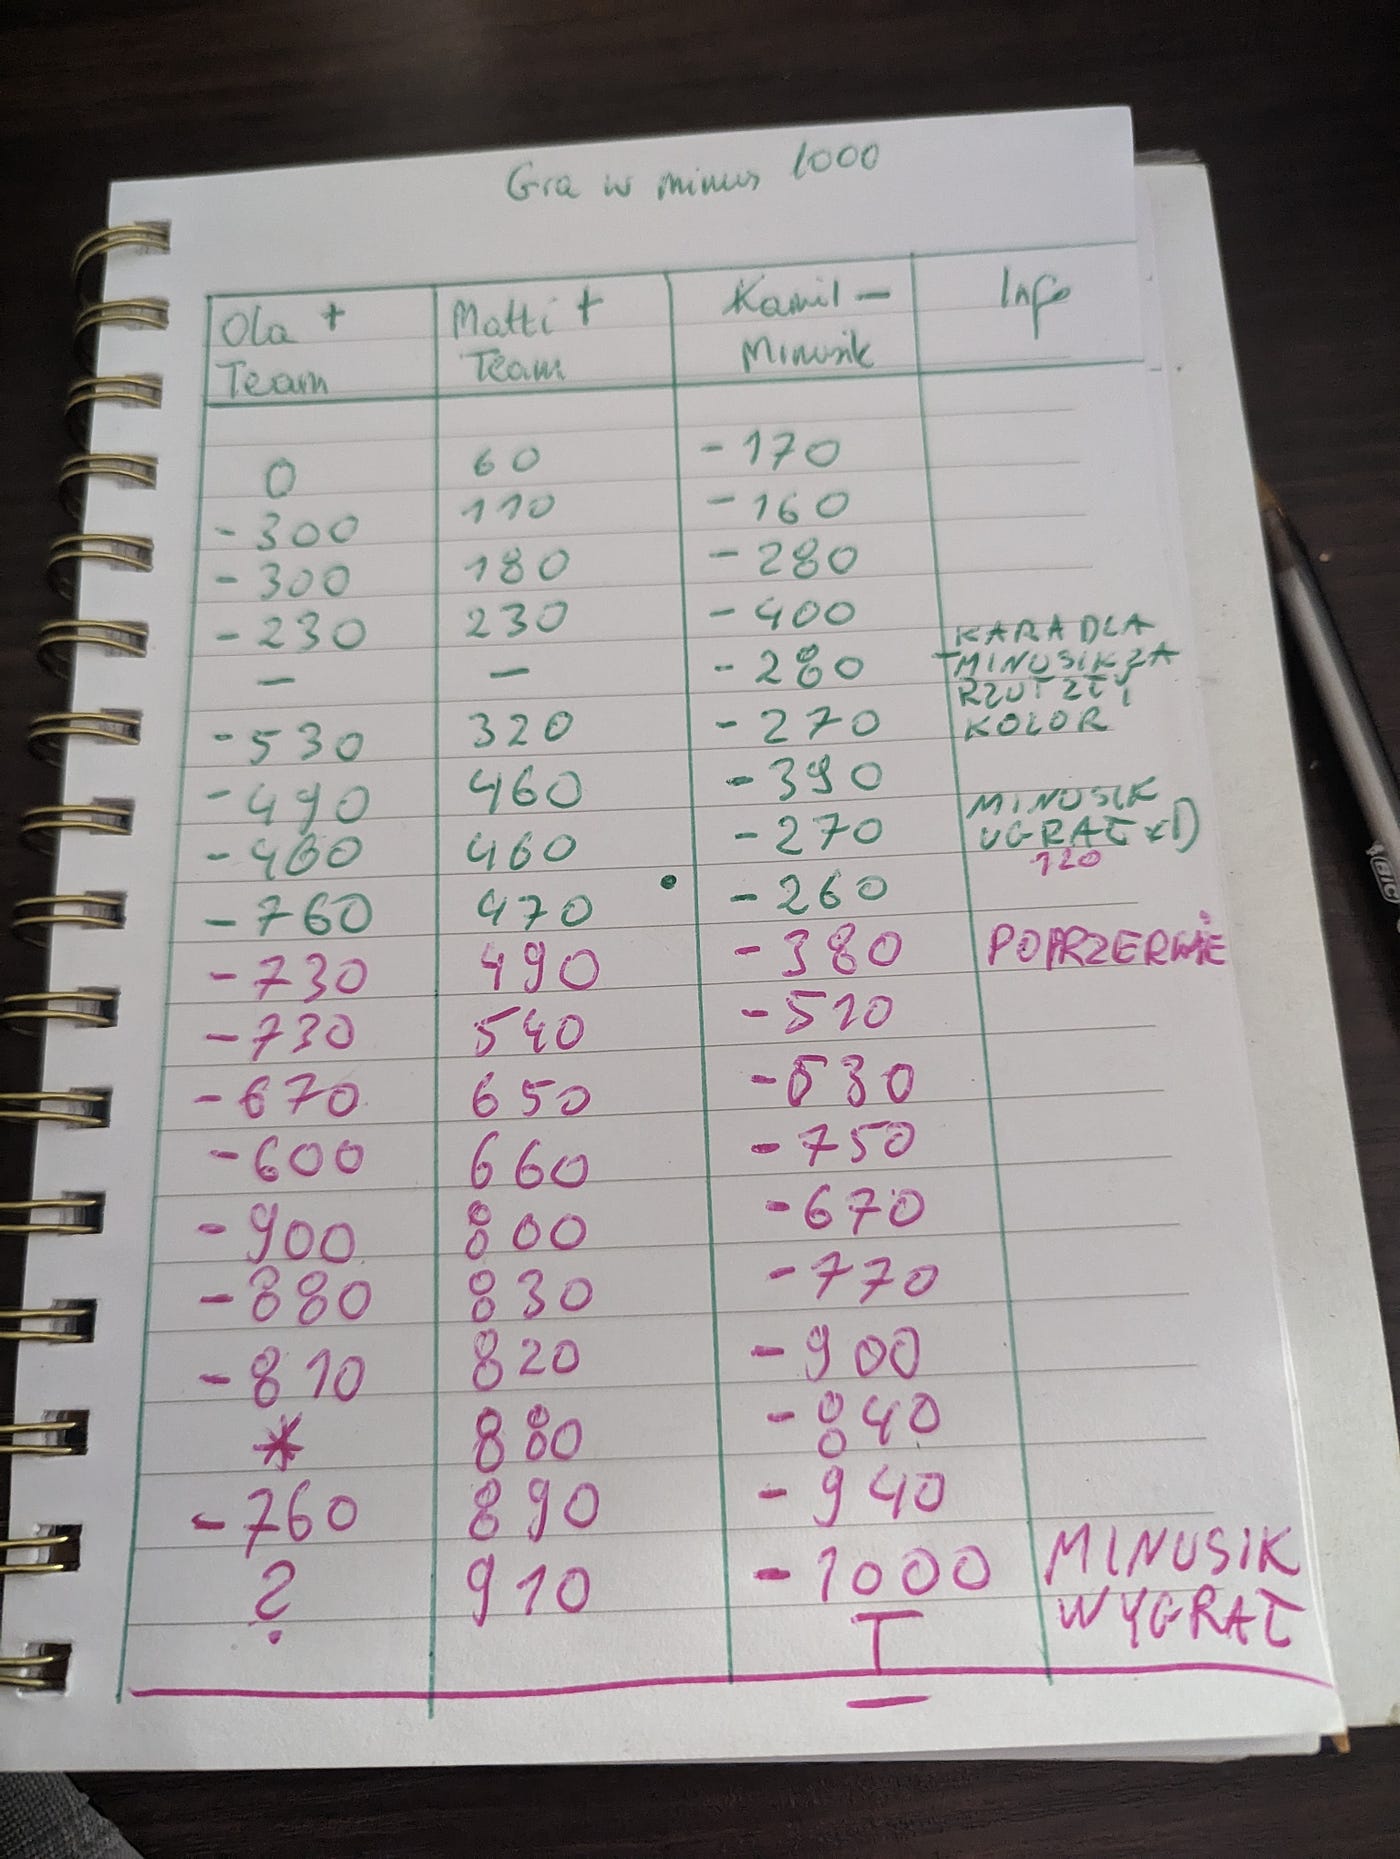 Gra w minus 1000
Ola + Matti + Kamil - Info
Team Team Minusik
0 60 -170
-300 110 -160
-300 180 -280
-230 230 -400
- - -280 KARA DLA
MINUSIK ZA
RZUT ZŁY
KOLOR
-530 320 -270
-490 460 -390
-460 460 -270 MINUSIK
UGRAŁ xD
120
-760 470 -260
-730 490 -380 PO PRZERWIE
-730 540 -510
-670 650 -530
-600 660 -750
-900 800 -670
-880 830 -770
-810 820 -900
* 880 -840
-760 890 -940
? 910 -1000 MINUSIK
WYGRAŁ
BIC